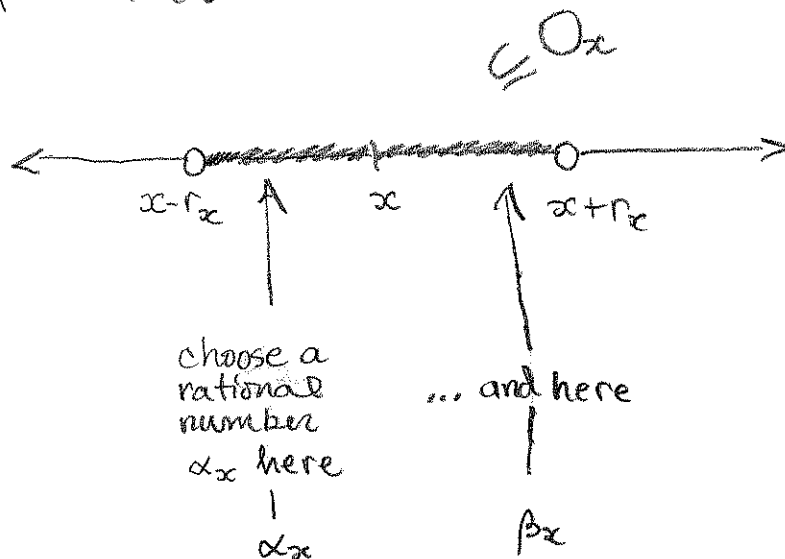 ⊆ Oₓ
x-rₓ x x+rₓ
choose a
rational
number
αₓ here
... and here
αₓ
βₓ